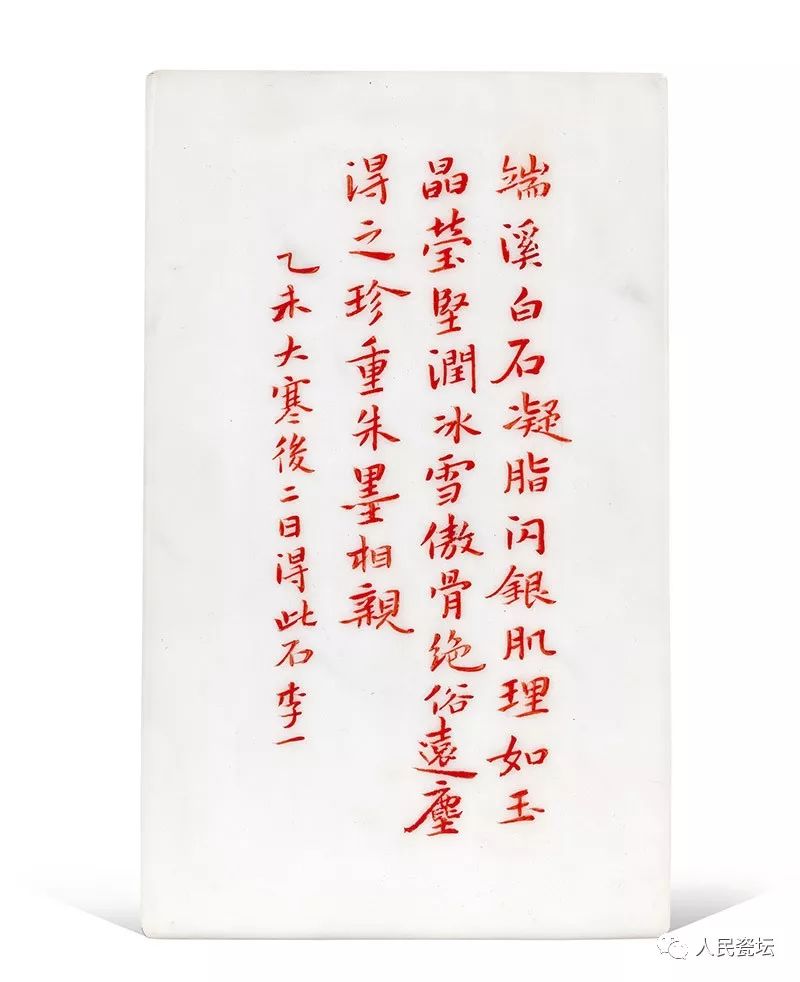 端溪白石凝脂闪銀肌理如玉
晶莹堅潤冰雪傲骨绝俗遠塵
淂之珍重朱墨相親
乙未大寒後二日淂此石李一
人民瓷坛